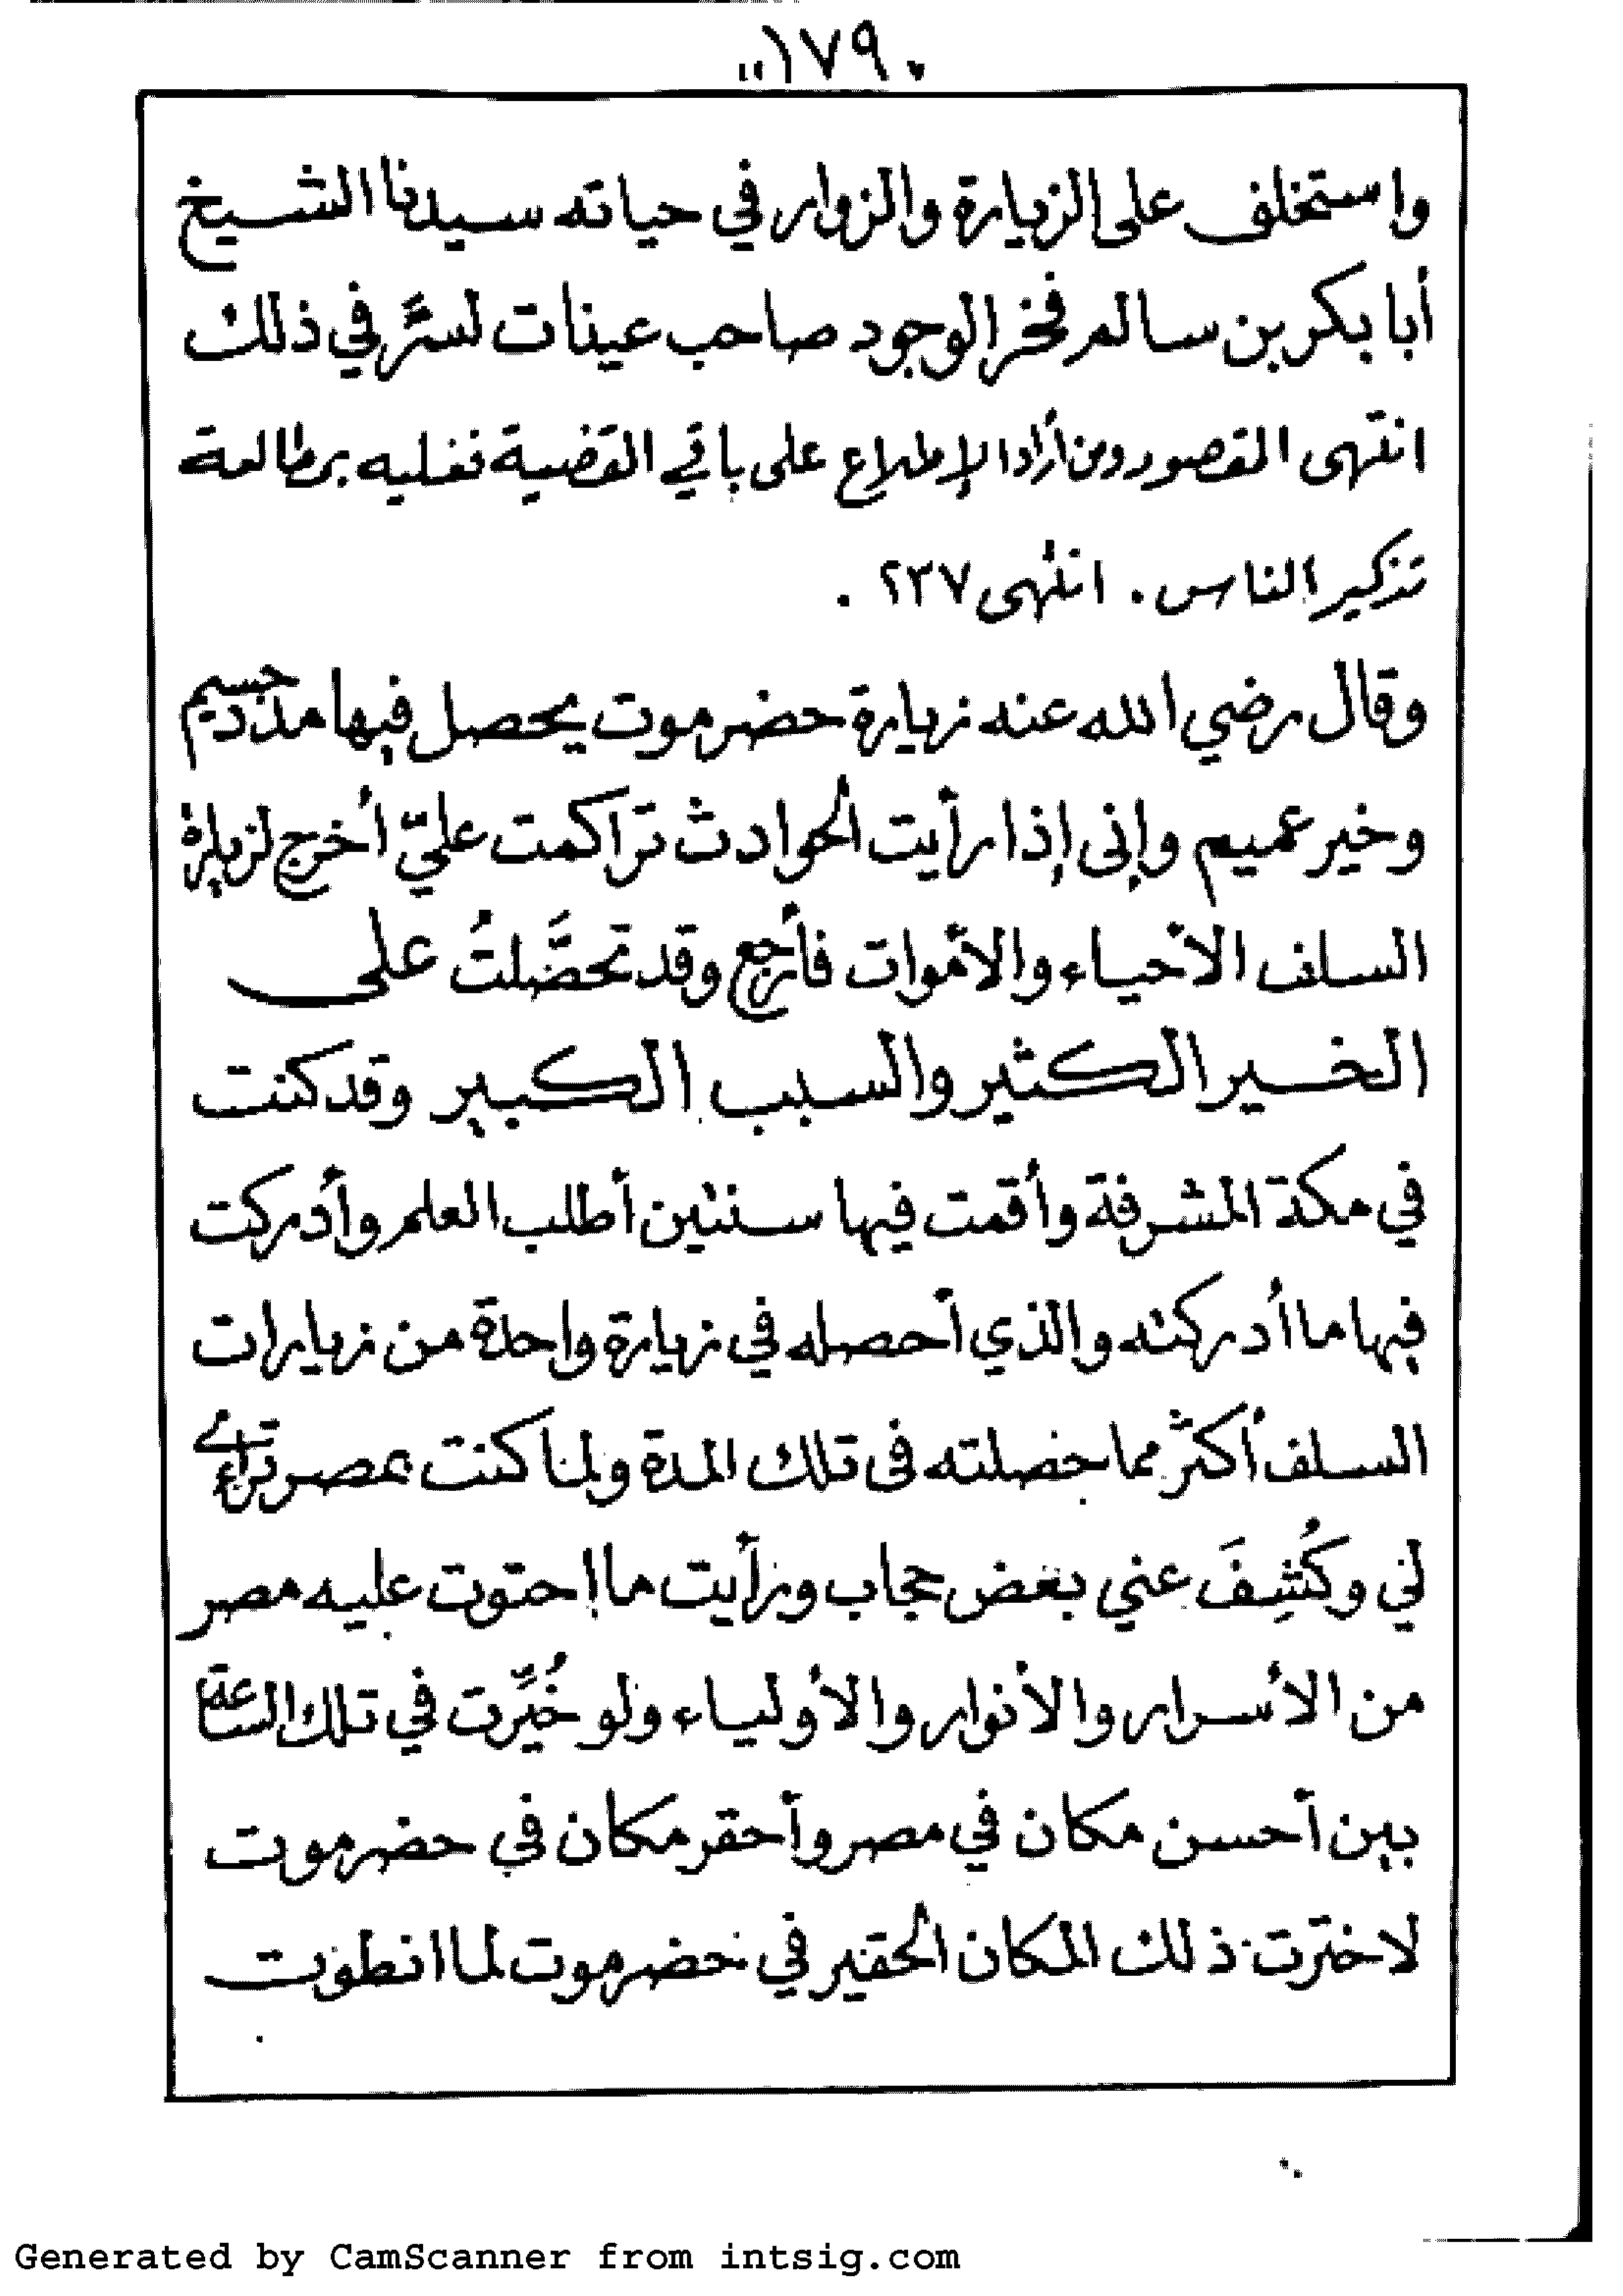 ١٧٩
واستخلف على الزيارة والزوار في حياته سيدنا الشيخ
أبا بكر بن سالم فخر الوجود صاحب عينات لسرٍّ في ذلك
انتهى المقصود ومن أراد الإطلاع على باقي القضية فعليه بمطالعة
تذكير الناس . انتهى ٢٣٧ .
وقال رضي الله عنه زيارة حضرموت يحصل فيها مدد جسيم
وخير عميم وإنى إذا رأيت الحوادث تراكمت عليّ أخرج لزيارة
السلف الأحياء والأموات فأرجع وقد تحصَّلتُ على
الخير الكثير والسبب الكبير وقد كنت
في مكة المشرفة وأقمت فيها سنتين أطلب العلم وأدركت
فيها ما أدركته والذي أحصله في زيارة واحدة من زيارات
السلف أكثر مما حصلته فى تلك المدة ولما كنت بمصر تراءى
لي وكُشِفَ عني بعض حجاب ورأيت ما احتوت عليه مصر
من الأسرار والأنوار والأولياء ولو خُيِّرت في تلك الساعة
بين أحسن مكان في مصر وأحقر مكان في حضرموت
لاخترت ذلك المكان الحقير في حضرموت لما انطوت
Generated by CamScanner from intsig.com